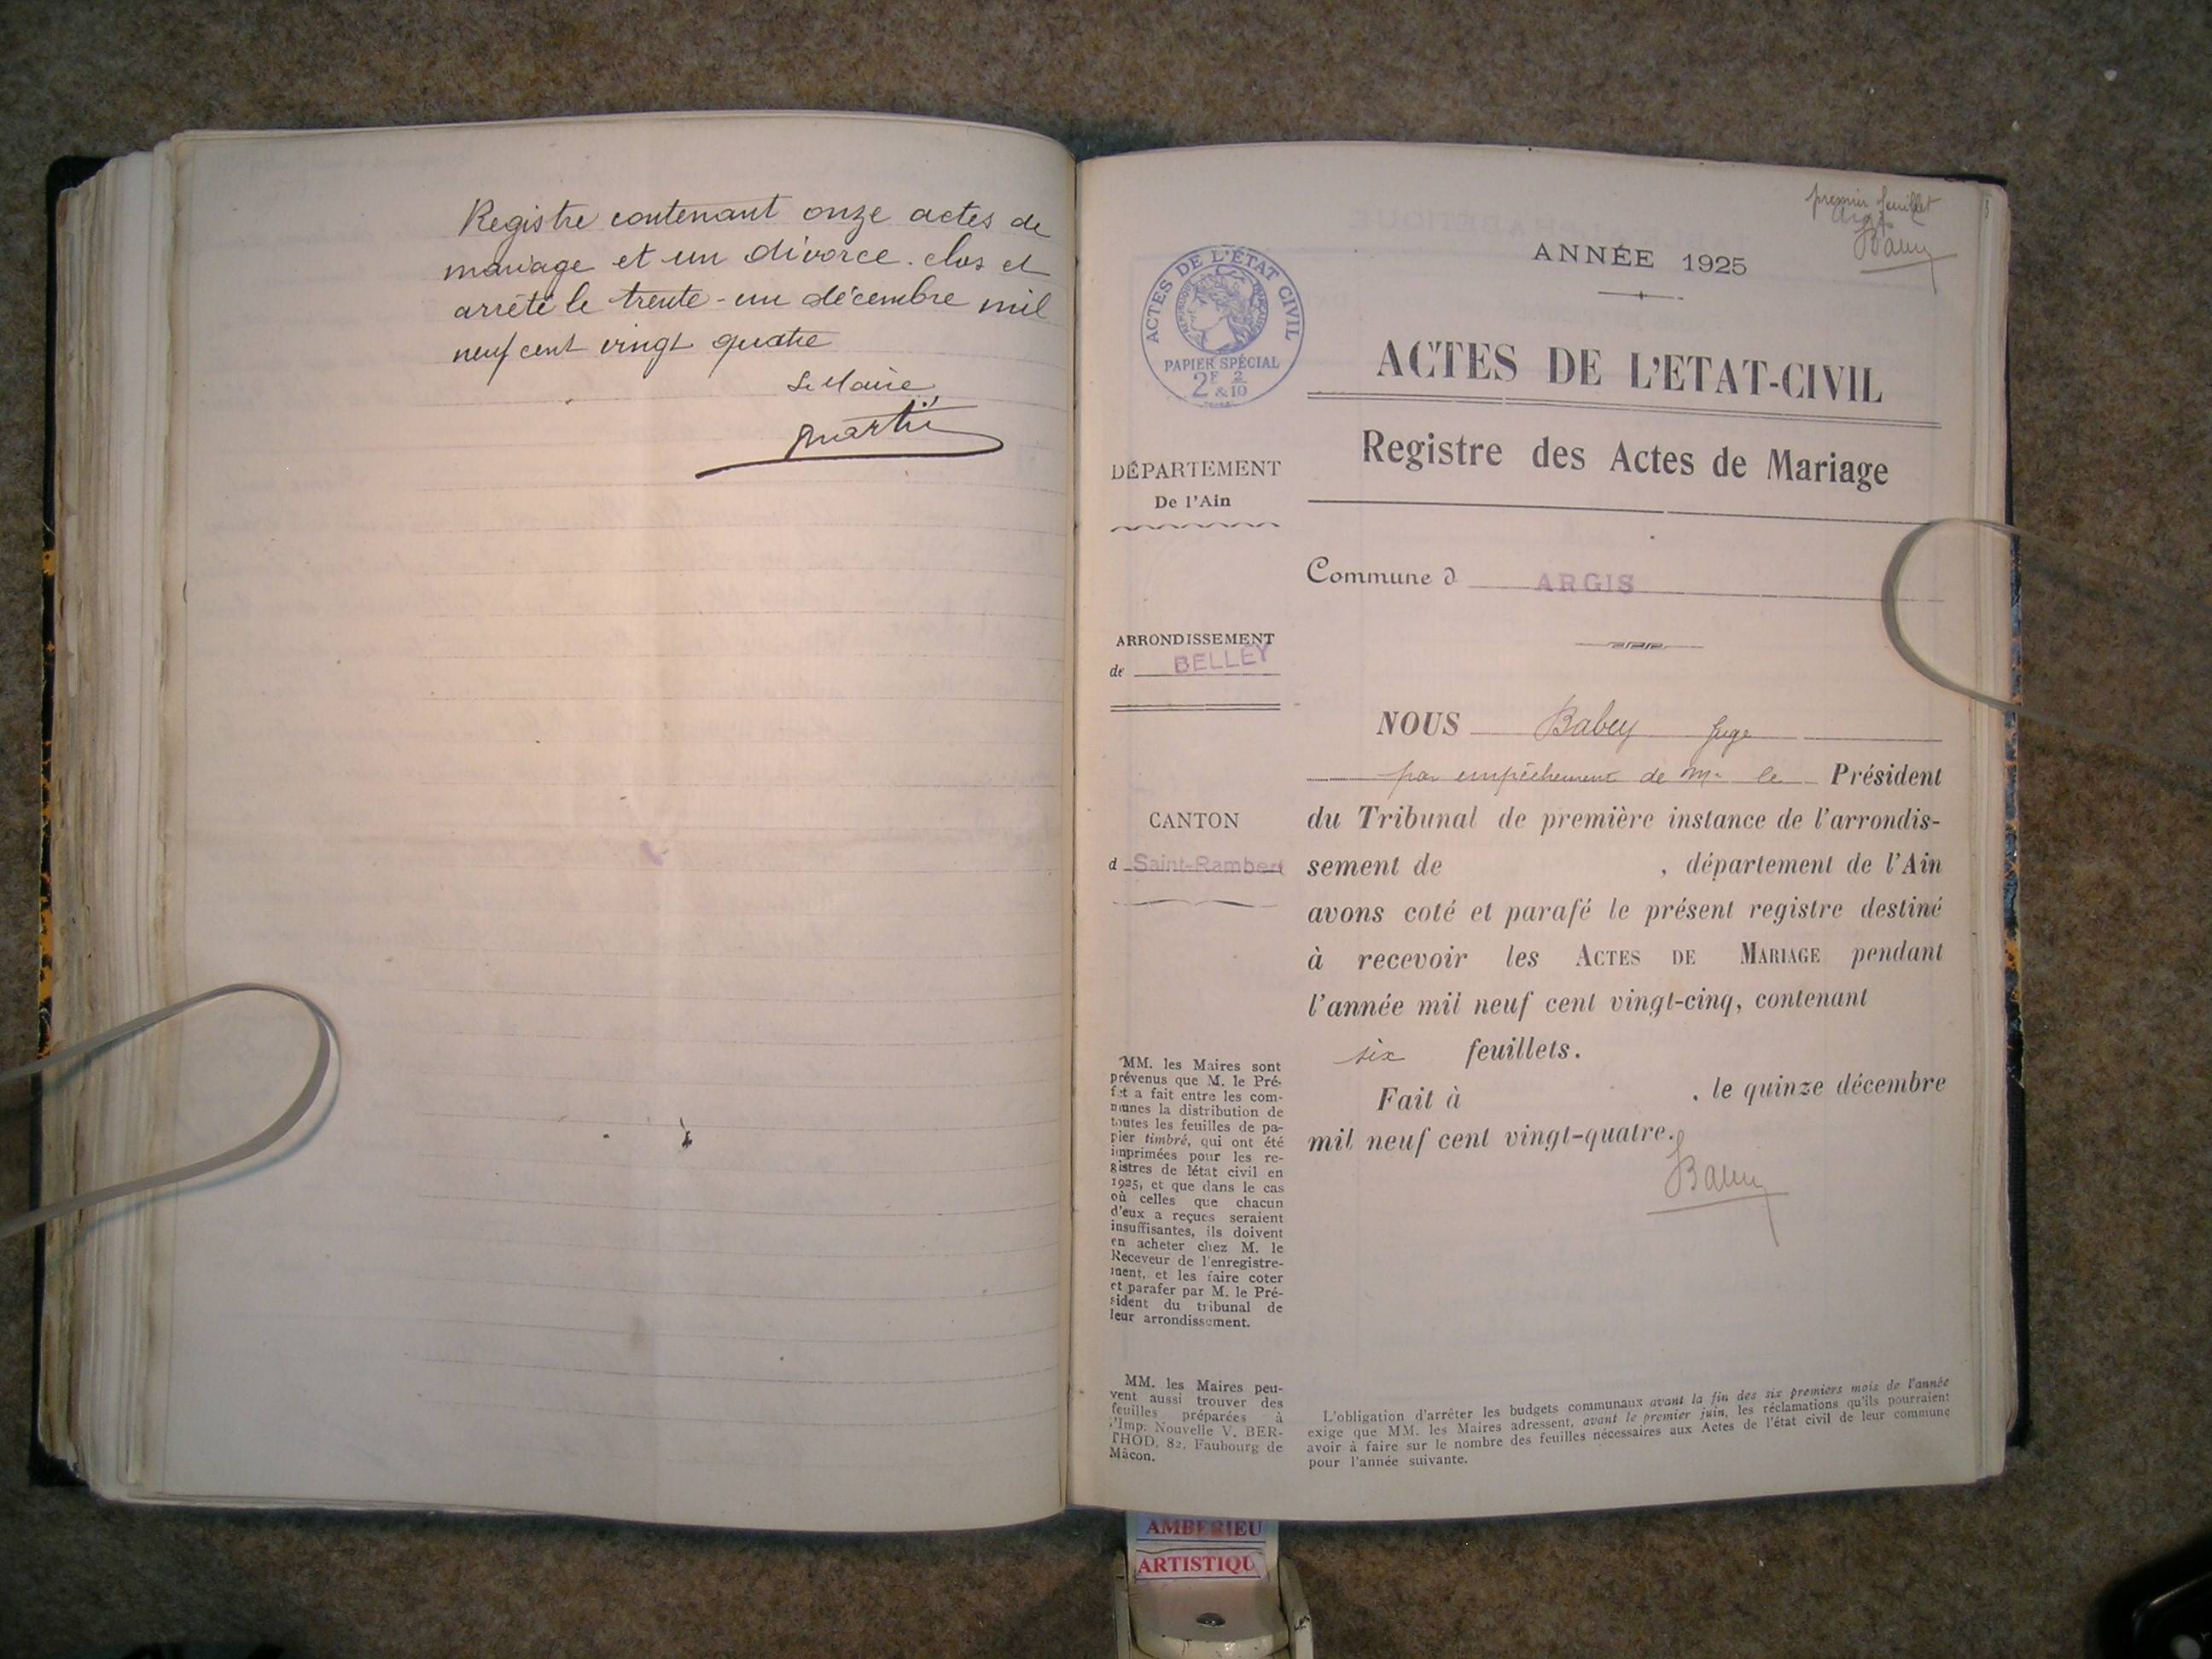 Registre contenant onze actes de
mariage et un divorce. clos et
arrêté le trente-un décembre mil
neuf cent vingt quatre
Le Maire
premier feuillet
Argis
ANNÉE 1925
ACTES DE L'ÉTAT CIVIL
RÉPUBLIQUE FRANÇAISE
PAPIER SPÉCIAL
2F 2
&10
ACTES DE L'ETAT-CIVIL
Registre des Actes de Mariage
DÉPARTEMENT
De l'Ain
Commune d ARGIS
ARRONDISSEMENT
de BELLEY
CANTON
d Saint-Rambert
NOUS Babey Juge
par empêchement de Mr le Président
du Tribunal de première instance de l'arrondis-
sement de , département de l'Ain
avons coté et parafé le présent registre destiné
à recevoir les ACTES DE MARIAGE pendant
l'année mil neuf cent vingt-cinq, contenant
six feuillets.
Fait à , le quinze décembre
mil neuf cent vingt-quatre.
Babey
MM. les Maires sont
prévenus que M. le Pré-
fet a fait entre les com-
munes la distribution de
toutes les feuilles de pa-
pier timbré, qui ont été
imprimées pour les re-
gistres de l'état civil en
1925, et que dans le cas
où celles que chacun
d'eux a reçues seraient
insuffisantes, ils doivent
en acheter chez M. le
Receveur de l'enregistre-
ment, et les faire coter
et parafer par M. le Pré-
sident du tribunal de
leur arrondissement.
MM. les Maires peu-
vent aussi trouver des
feuilles préparées à
l'Imp. Nouvelle V. BER-
THOD, 82, Faubourg de
Mâcon.
L'obligation d'arrêter les budgets communaux avant la fin des six premiers mois de l'année
exige que MM. les Maires adressent, avant le premier juin, les réclamations qu'ils pourraient
avoir à faire sur le nombre des feuilles nécessaires aux Actes de l'état civil de leur commune
pour l'année suivante.
AMBERIEU
ARTISTIQU